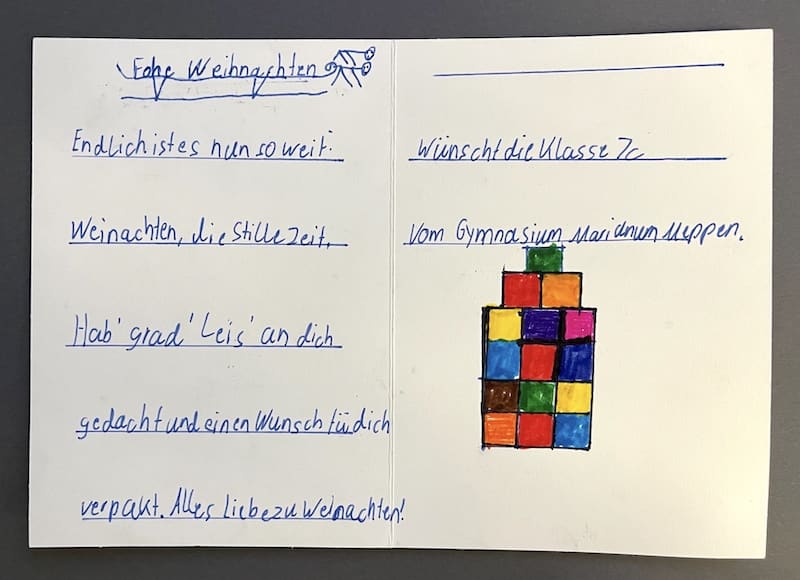 Frohe Weihnachten
Endlich ist es nun so weit.
Weinachten, die Stille Zeit.
Hab' grad' Leis' an dich
gedacht und einen Wunsch für dich
verpakt. Alles Liebe zu Weinachten!
Wünscht die Klasse 7c
Vom Gymnasium Marianum Meppen.